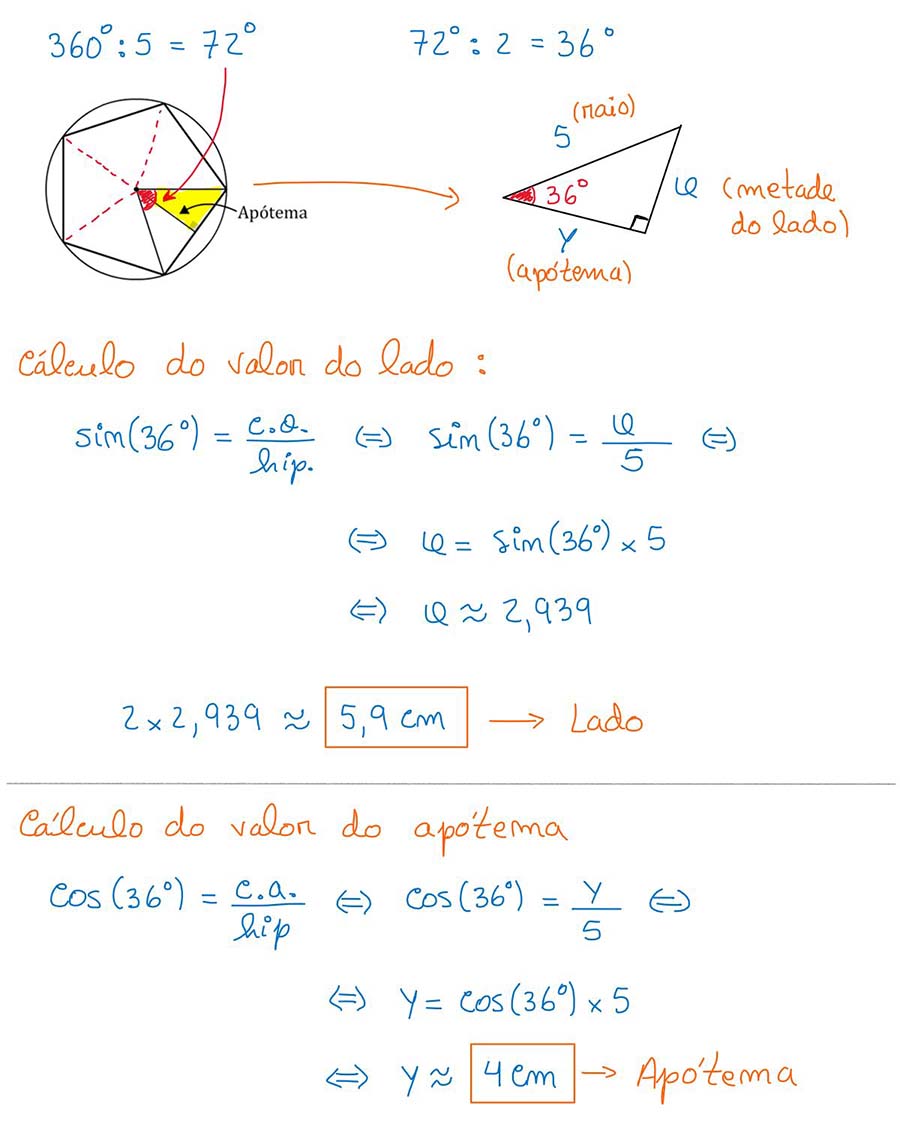 360° : 5 = 72°
72° : 2 = 36°
(raio)
5
36°
φ (metade
do lado)
Apótema
y
(apótema)
Cálculo do valor do lado :
sin(36°) = c.o./hip. ⇔ sin(36°) = φ/5 ⇔
⇔ φ = sin(36°) × 5
⇔ φ ≈ 2,939
2 × 2,939 ≈ 5,9 cm → Lado
Cálculo do valor do apótema
cos(36°) = c.a./hip ⇔ cos(36°) = y/5 ⇔
⇔ y = cos(36°) × 5
⇔ y ≈ 4 cm → Apótema